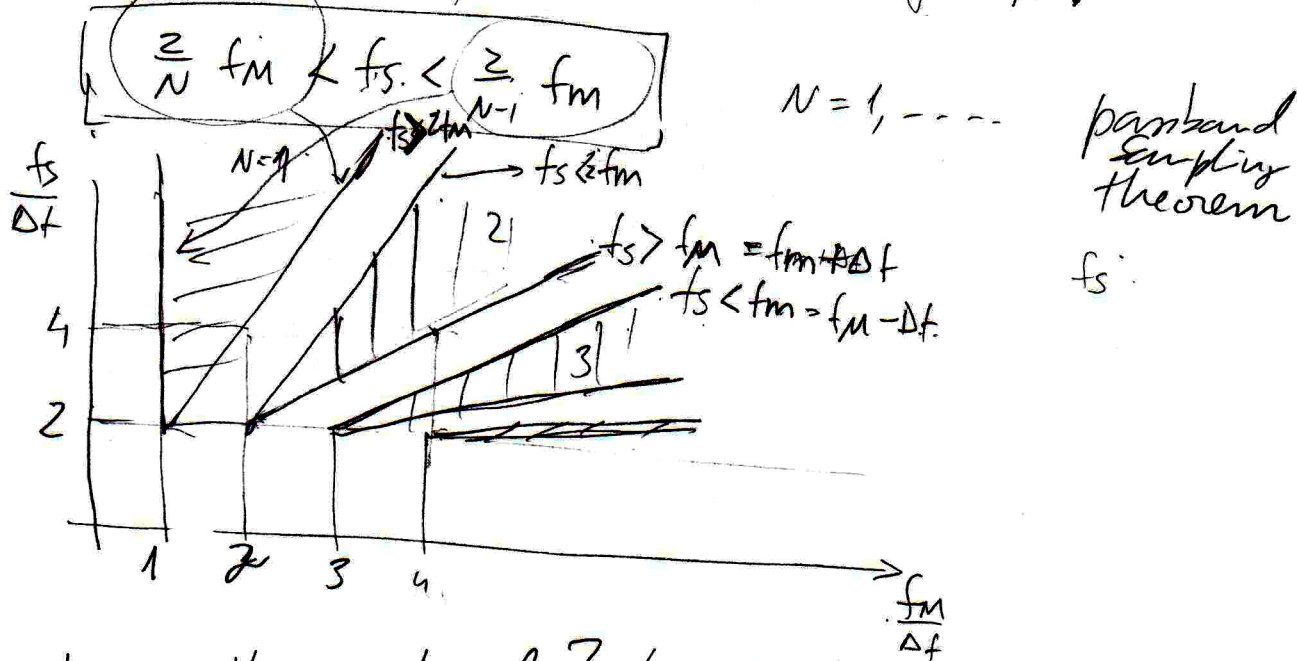 2/N fM < fs < 2/N-1 fm
N = 1, ----
passband
sampling
theorem
fs:
fs > 2fM
N=1
fs ≤ 2fm
fs/Δf
2
fs > fM = fm + Δf
fs < fm = fM - Δf
4
3
2
1 2 3 4
fM/Δf